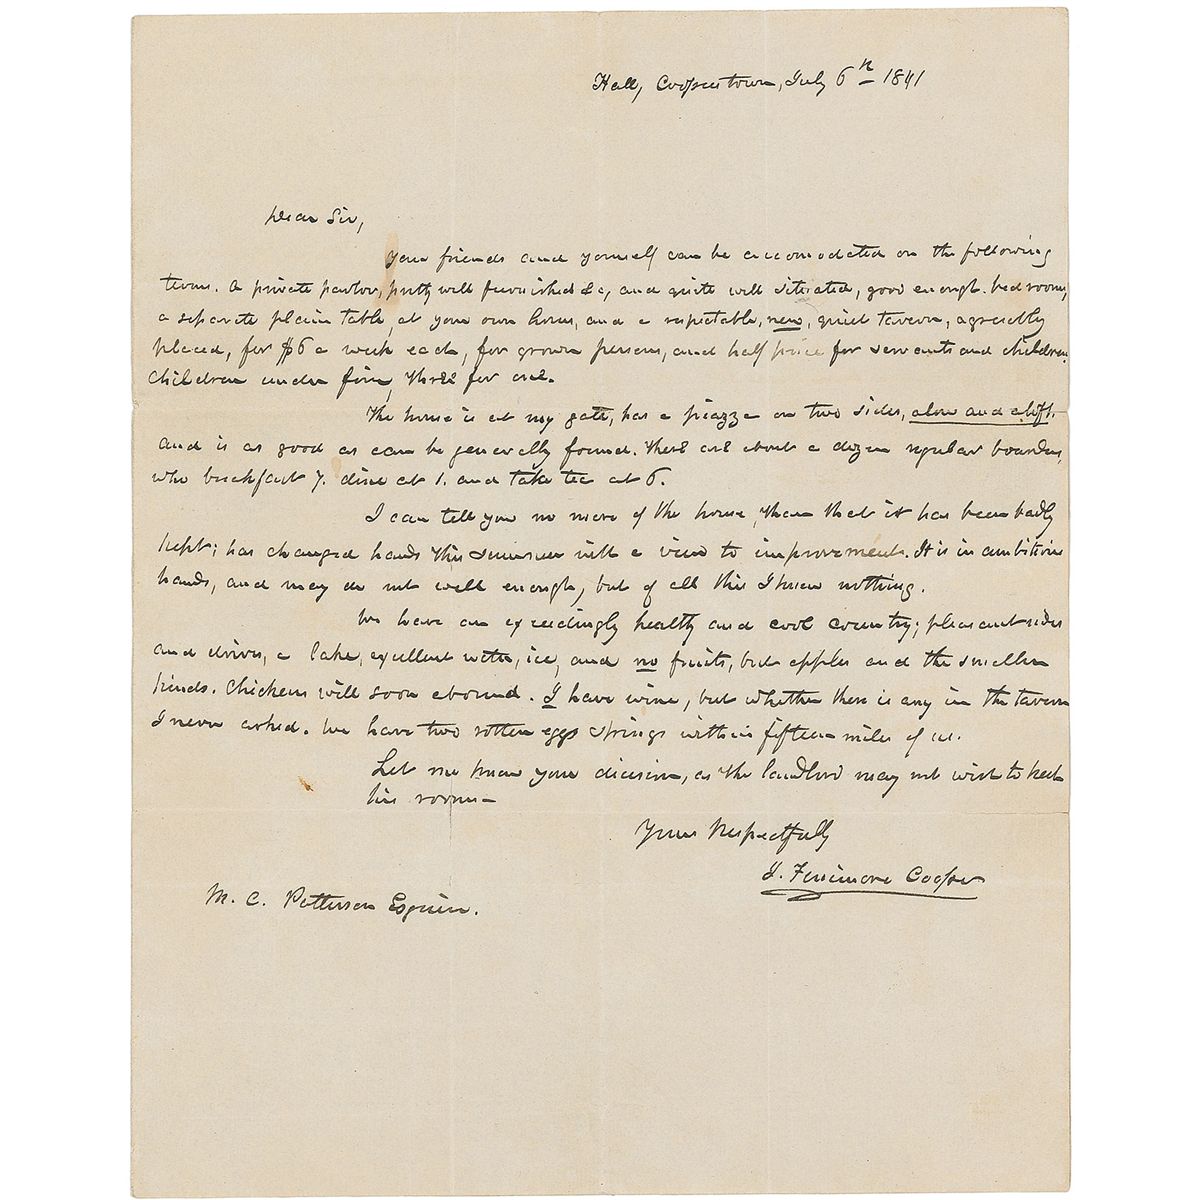 Hall, Cooperstown, July 6th 1841
Dear Sir,
Your friends and yourself can be accomodated on the following
terms. A private parlor, pretty well furnished &c, and quite well situated, good enough bed rooms,
a separate plain table, at your own hours, and a respectable, new, quiet tavern, agreeably
placed, for $6 a week each, for grown persons, and half price for servants and children.
Children under five, three for one.
The house is at my gate, has a piazza on two sides, alow and aloft,
and is as good as can be generally found. There are about a dozen regular boarders,
who breakfast 7. dine at 1. and take tea at 6.
I can tell you no more of the house, than that it has been badly
kept; has changed hands this summer with a view to improvements. It is in ambitious
hands, and may do not well enough, but of all this I know nothing.
We have an exceedingly healthy and cool country; pleasant rides
and drives, a lake, excellent water, ice, and no fruits, but apples and the smaller
kinds. Chickens will soon abound. I have wine, but whether there is any in the tavern
I never asked. We have two rotten eggs springs within fifteen miles of us.
Let me know your decision, as the landlord may not wish to keep
his rooms—
Yours Respectfully
J. Fenimore Cooper
M. C. Patterson Esquire.